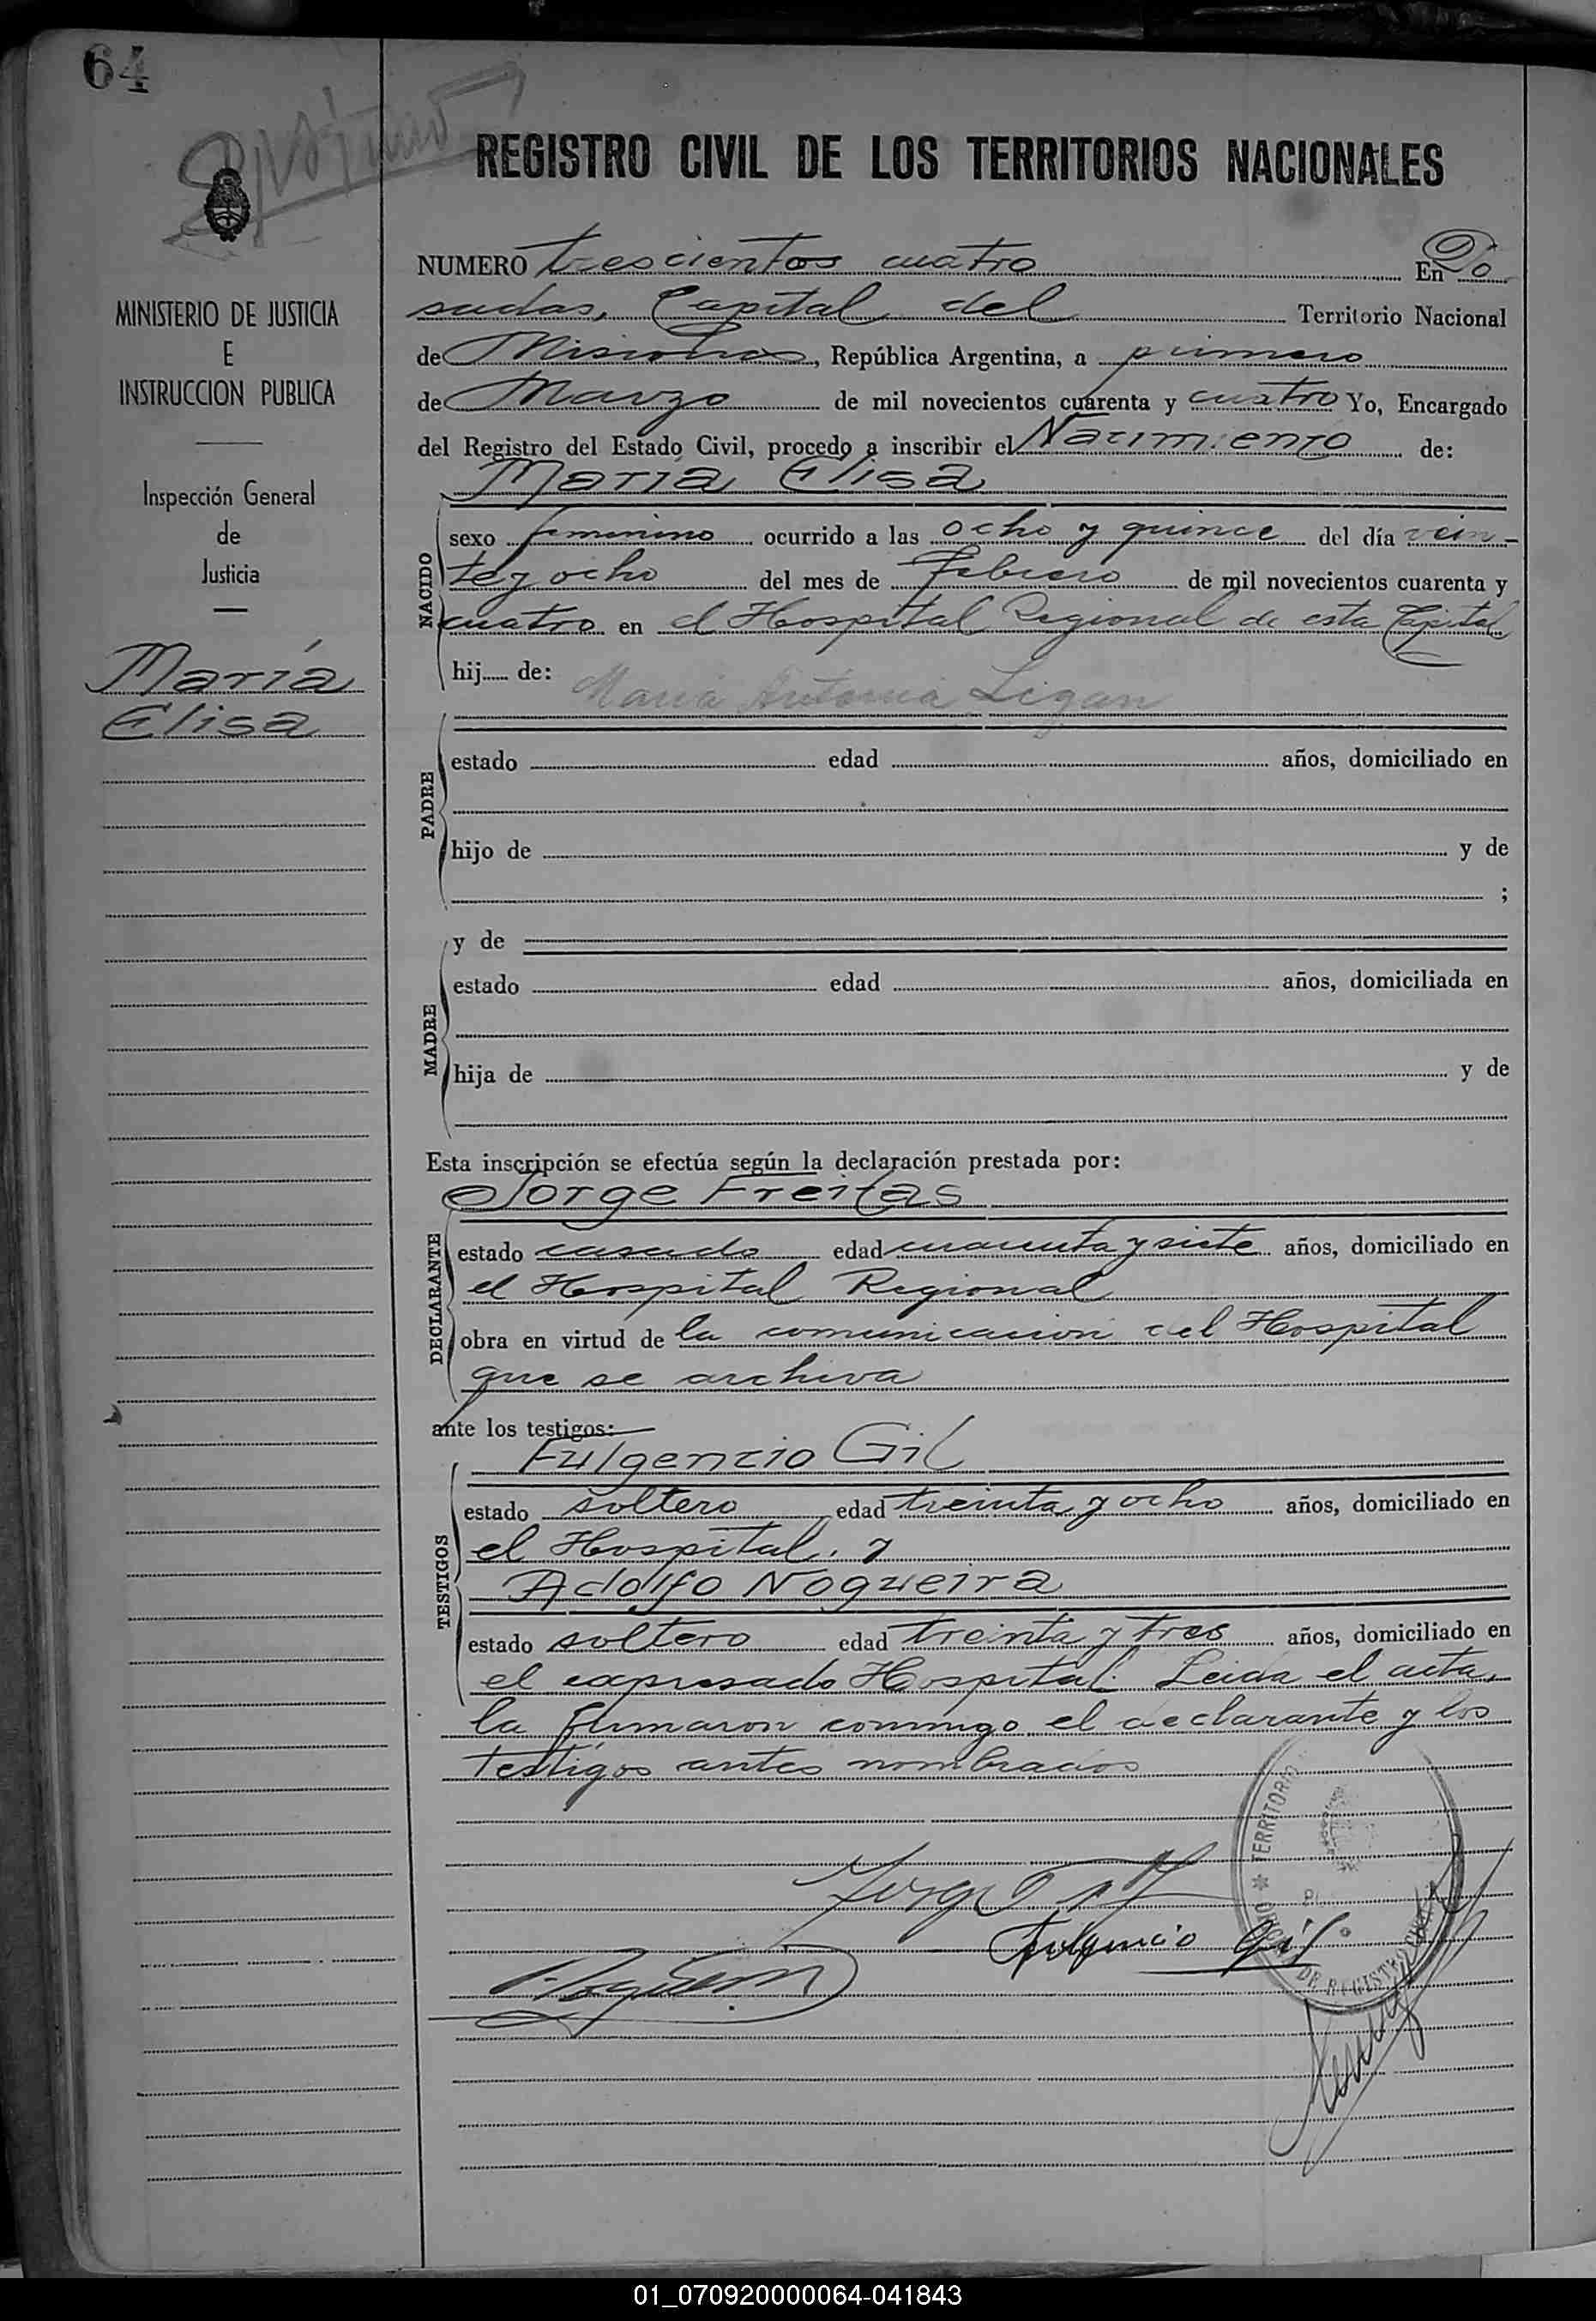 64
REGISTRO CIVIL DE LOS TERRITORIOS NACIONALES
MINISTERIO DE JUSTICIA
E
INSTRUCCION PUBLICA
Inspección General
de
Justicia
María
Elisa
NUMERO trescientos cuatro En Po
sadas, Capital del Territorio Nacional
de Misiones, República Argentina, a primero
de Marzo de mil novecientos cuarenta y cuatro Yo, Encargado
del Registro del Estado Civil, procedo a inscribir el Nacimiento de:
María Elisa
NACIDO
sexo femenino ocurrido a las ocho y quince del día vein-
te y ocho del mes de Febrero de mil novecientos cuarenta y
cuatro en el Hospital Regional de esta Capital
hij de:
Maria Antonia Ligan
PADRE
estado edad años, domiciliado en
hijo de y de
;
y de
MADRE
estado edad años, domiciliada en
hija de y de
Esta inscripción se efectúa según la declaración prestada por:
Jorge Freitas
DECLARANTE
estado casado edad cuarenta y siete años, domiciliado en
el Hospital Regional
obra en virtud de la comunicacion del Hospital
que se archiva
ante los testigos:
Fulgencio Gil
TESTIGOS
estado soltero edad treinta y ocho años, domiciliado en
el Hospital. y
Adolfo Nogueira
estado soltero edad treinta y tres años, domiciliado en
el expresado Hospital. Leida el acta,
la firmaron conmigo el declarante y los
testigos antes nombrados
TERRITORIO
DE REGISTRO CIVIL
Fulgencio Gil
01_070920000064-041843